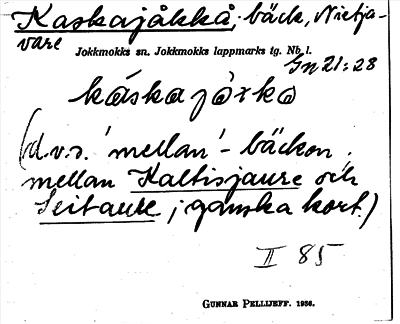 Kaskajåkkå, bäck, Nietja-
vare
Jokkmokks sn. Jokkmokks lappmarks tg. Nb. l.
Gn 21:28
káskajåxkɷ
(d.v.s. 'mellan'-bäcken;
mellan Kaltisjaure och
Seitaure; ganska kort.)
II 85
GUNNAR PELLIJEFF. 1956.